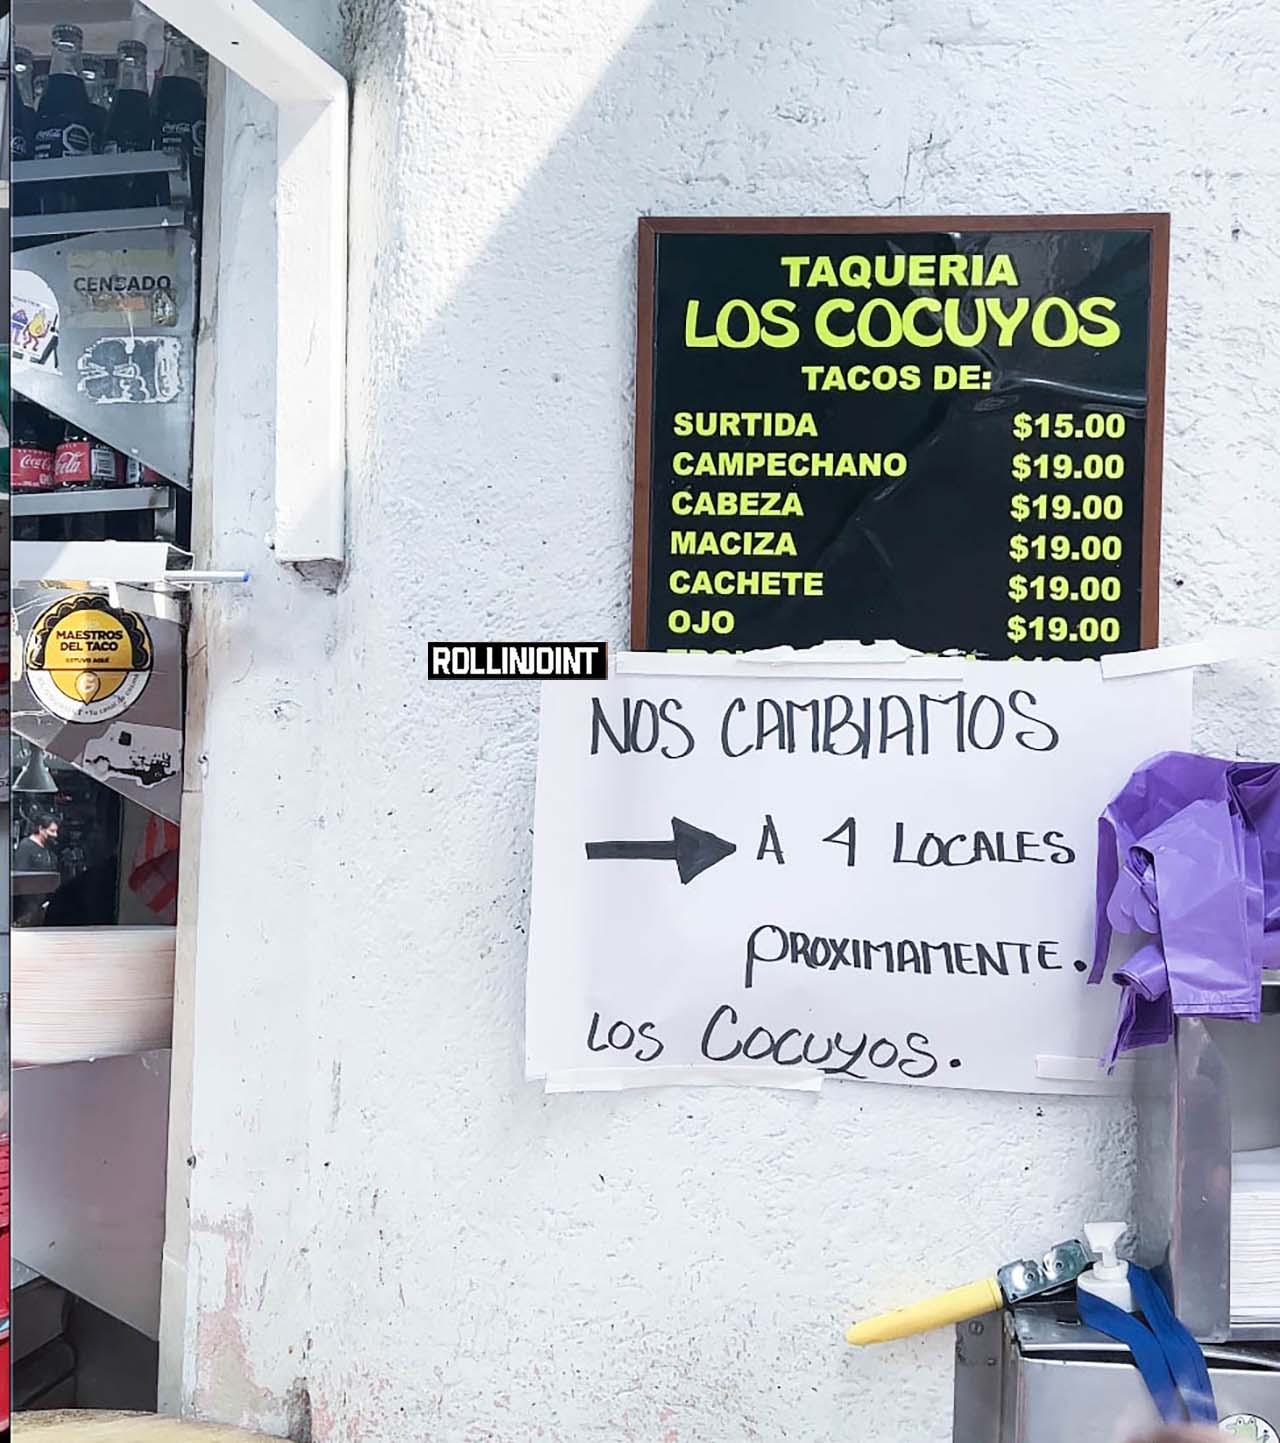 CENSADO
Coca-Cola
MAESTROS
DEL TACO
ESTUVO AQUÍ
TAQUERIA
LOS COCUYOS
TACOS DE:
SURTIDA $15.00
CAMPECHANO $19.00
CABEZA $19.00
MACIZA $19.00
CACHETE $19.00
OJO $19.00
ROLLINJOINT
NOS CAMBIAMOS
A 4 LOCALES
PROXIMAMENTE.
LOS COCUYOS.